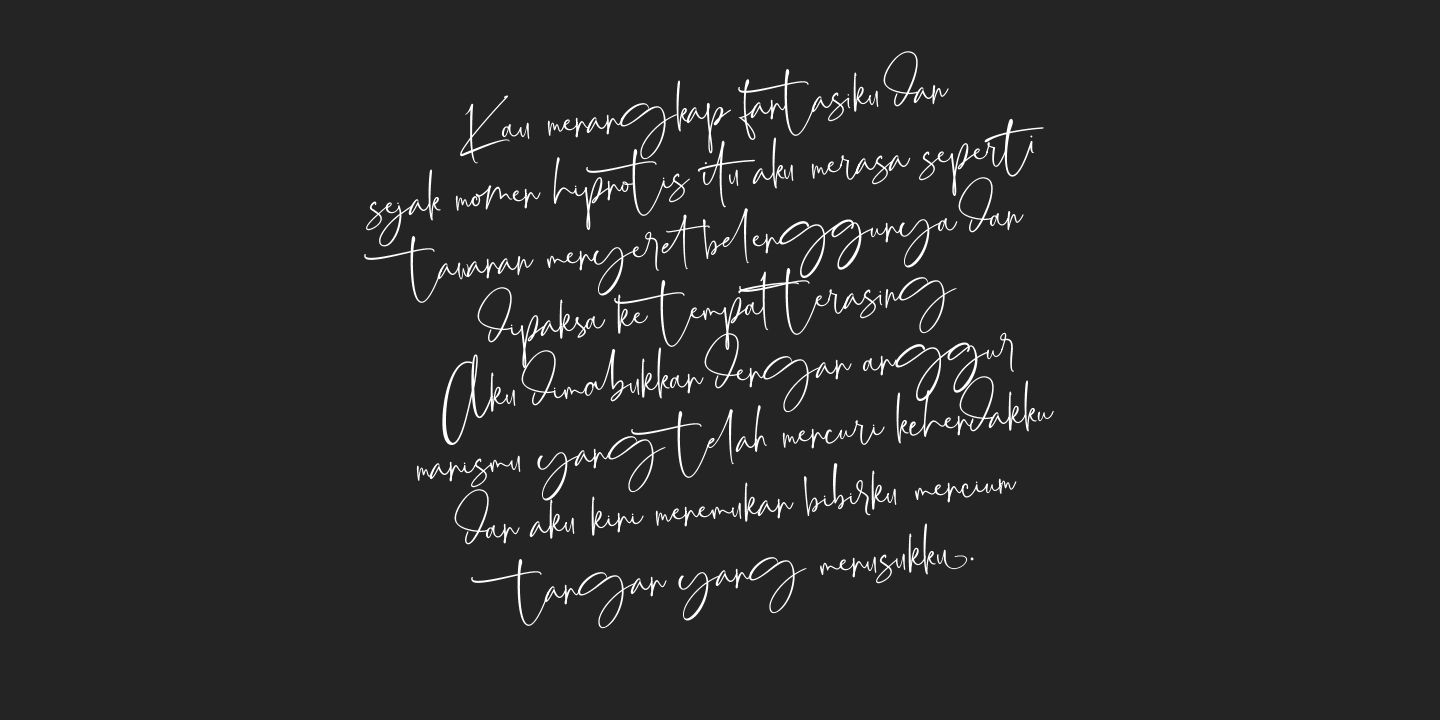 Kau menangkap fantasiku dan
sejak momen hipnotis itu aku merasa seperti
tawanan menyeret belenggunya dan
dipaksa ke tempat terasing
Aku dimabukkan dengan anggur
manismu yang telah mencuri kehendakku
dan aku kini menemukan bibirku mencium
tangan yang menusukku.